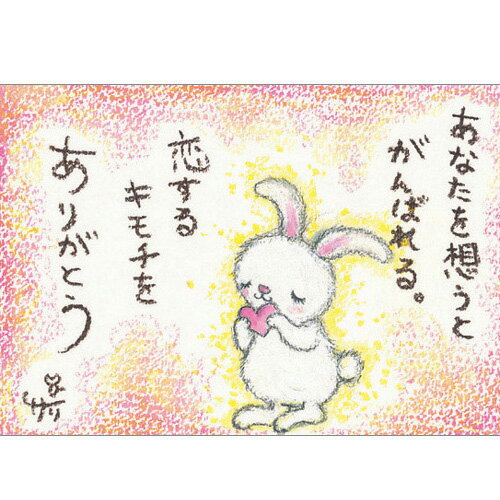 あなたを想うと
がんばれる。
恋する
キモチを
ありがとう